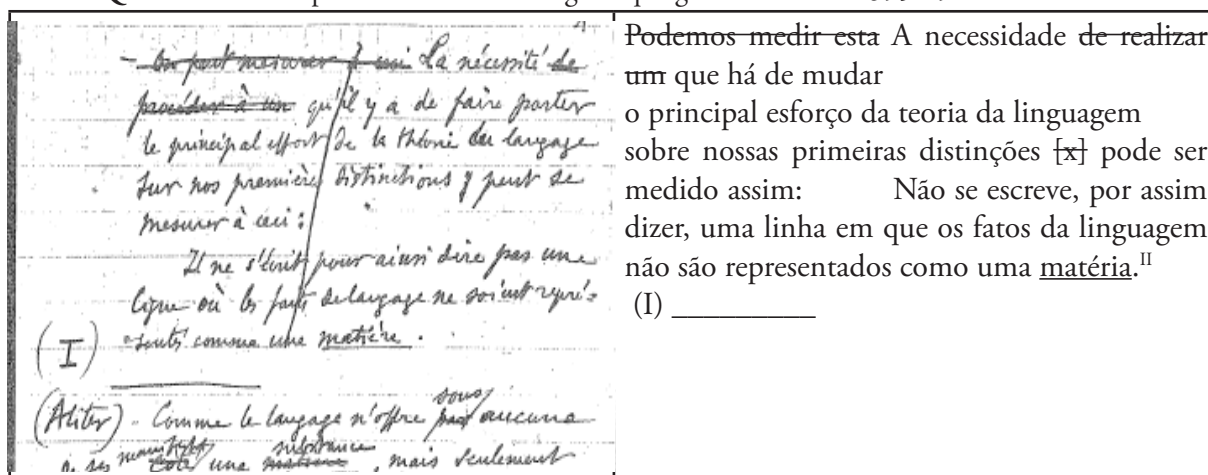 - On peut mesurer La nécessité de
procéder à un qu'il y a de faire porter
le principal effort de la théorie du langage
sur nos premières distinctions peut se
mesurer à ceci :
Il ne s'écrit pour ainsi dire pas une
ligne où les faits de langage ne soient repré-
sentés comme une matière.
(I)
(Aliter) - Comme le langage n'offre pas sous aucune
de ses une matière substance, mais seulement
Podemos medir esta A necessidade de realizar
um que há de mudar
o principal esforço da teoria da linguagem
sobre nossas primeiras distinções [x] pode ser
medido assim: Não se escreve, por assim
dizer, uma linha em que os fatos da linguagem
não são representados como uma matéria.II
(I) _________